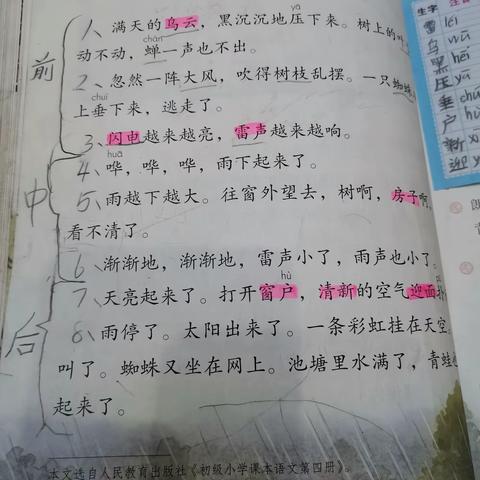 生字
lěi
雷
wū
乌
hēi
黑
yā
压
chuí
垂
户
新
迎
前
中
后
yā
1、满天的乌云，黑沉沉地压下来。树上的叶
chán
动不动，蝉一声也不出。
2、忽然一阵大风，吹得树枝乱摆。一只蜘蛛
chuí
上垂下来，逃走了。
3、闪电越来越亮，雷声越来越响。
huā
4、哗，哗，哗，雨下起来了。
5、雨越下越大。往窗外望去，树啊，房子啊，
看不清了。
6、渐渐地，渐渐地，雷声小了，雨声也小了。
hù
7、天亮起来了。打开窗户，清新的空气迎面扑
8、雨停了。太阳出来了。一条彩虹挂在天空。
叫了。蜘蛛又坐在网上。池塘里水满了，青蛙
起来了。
本文选自人民教育出版社《初级小学课本语文第四册》。